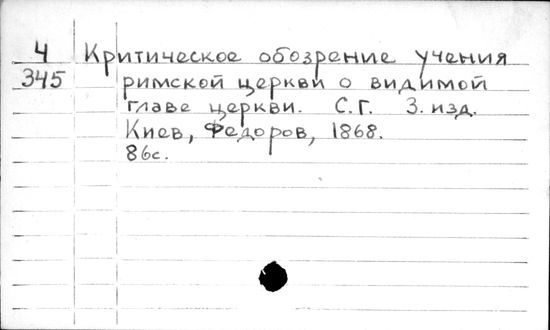 4 Критическое обозрение учения
345 римской церкви о видимой
главе церкви. С.Г. 3. изд.
Киев, Федоров, 1868.
86с.